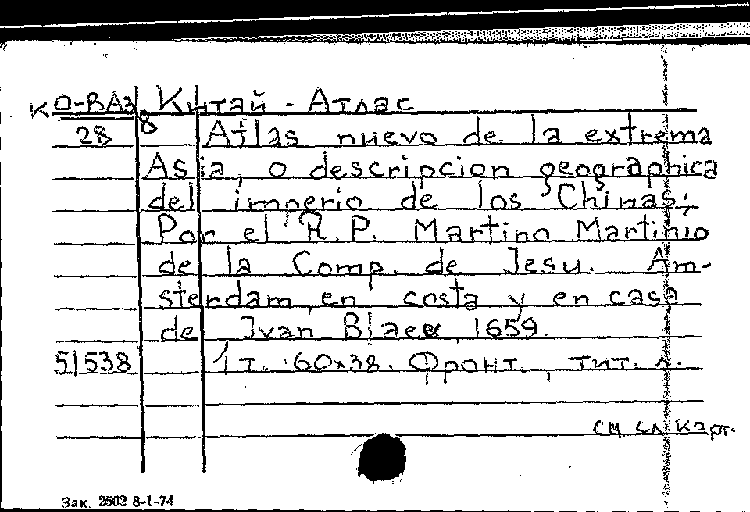 КО-ВАЗ 8 Китай - Атлас
28 Atlas nuevo de la extrema
Asia, o descripcion geographica
del imperio de los Chinas;
Por el R. P. Martino Martinio
de la Comp. de Jesu. Am-
sterdam, en costa y en casa
de Ivan Blaeu 1659.
51538 1 т. 60x38. Фронт., тит. л.
см. сл. карт.
Зак. 2502 8-1-74